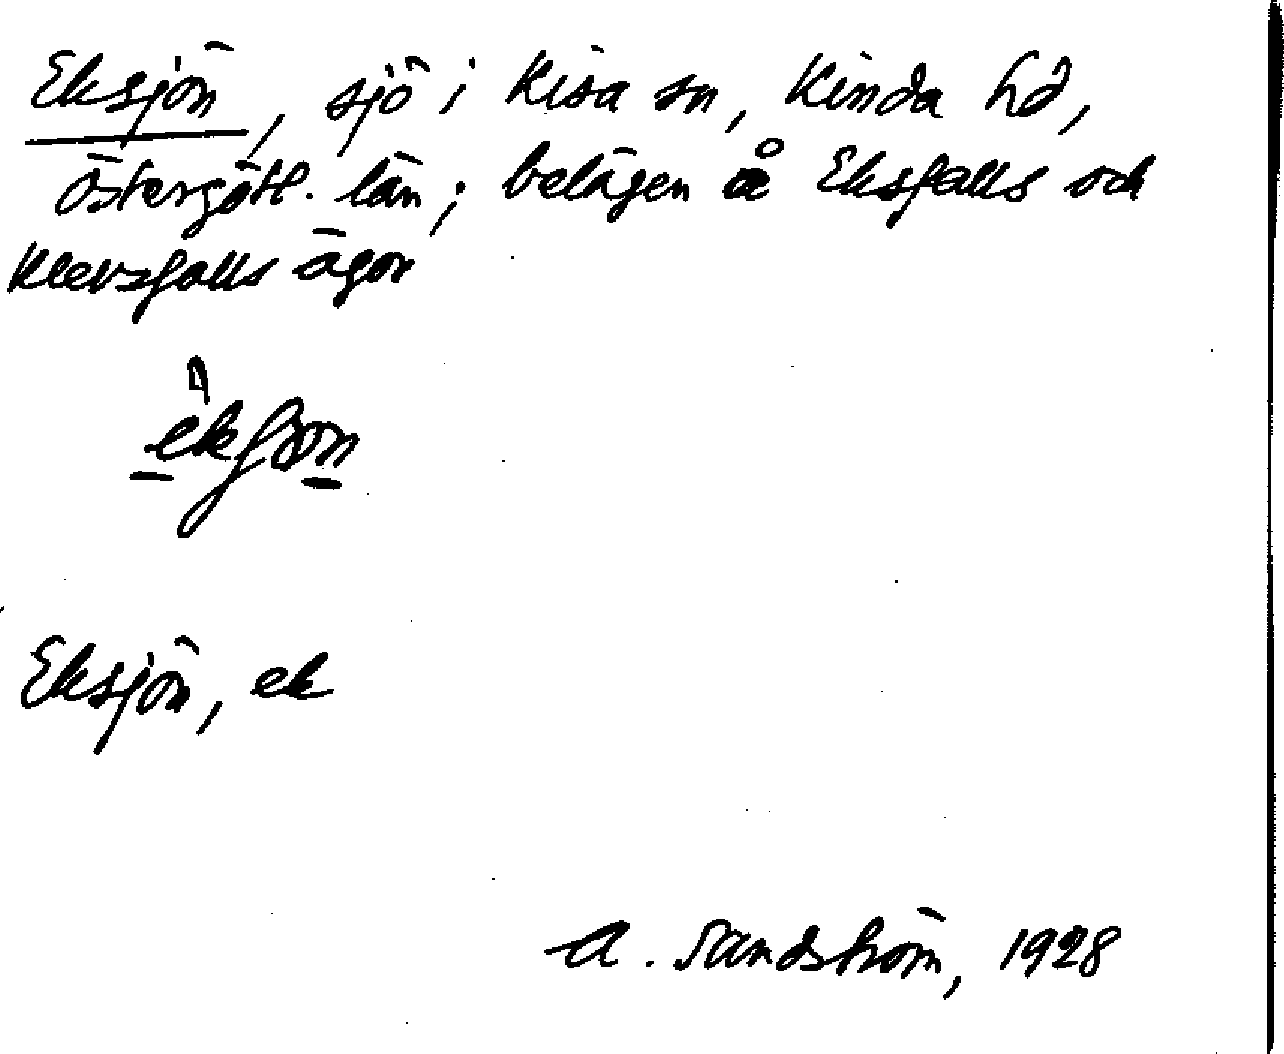 Eksjön, sjö i Kisa sn, Kinda hd,
Östergötl. län; belägen å Eksfalls och
Klevsfalls ägor
Eksjön, ek
A. Sandström, 1928